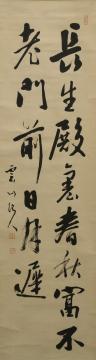 長生殿裏春秋富不
老門前日月遲